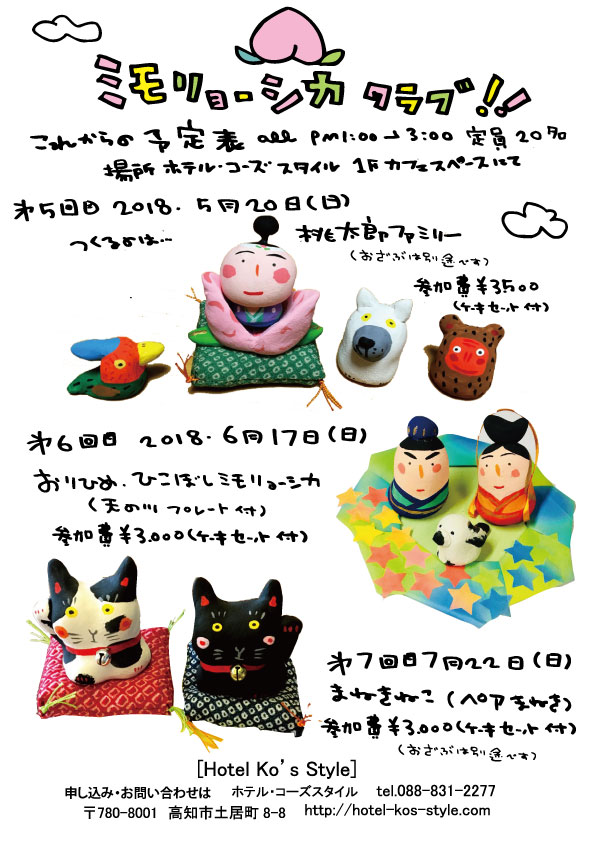 ミモリョーシカ クラブ!!
これからの 予定表 all PM1:00→3:00 定員20名
場所 ホテル・コーズスタイル 1F カフェスペースにて
第5回目 2018. 5月20日(日)
つくるのは… 桃太郎ファミリー
(おざぶは別途です)
参加費¥3500
(ケーキセット付)
第6回目 2018. 6月17日(日)
おりひめ.ひこぼしミモリョーシカ
(天の川 プレート付)
参加費¥3.000(ケーキセット付)
第7回目7月22日(日)
まねきねこ(ペアまねき)
参加費¥3.000(ケーキセット付)
(おざぶは別途です)
[Hotel Ko's Style]
申し込み・お問い合わせは ホテル・コーズスタイル tel.088-831-2277
〒780-8001 高知市土居町8-8 http://hotel-kos-style.com